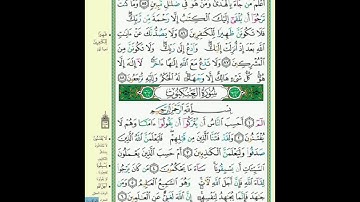 أَعْلَمُ مَن جَآءَ بِٱلْهُدَىٰ وَمَنْ هُوَ فِى ضَلَٰلٍ مُّبِينٍ ٨٥ وَمَا كُنتَ
تَرْجُوٓا۟ أَن يُلْقَىٰٓ إِلَيْكَ ٱلْكِتَٰبُ إِلَّا رَحْمَةً مِّن رَّبِّكَ
فَلَا تَكُونَنَّ ظَهِيرًا لِّلْكَٰفِرِينَ ٨٦ وَلَا يَصُدُّنَّكَ عَنْ ءَايَٰتِ
ٱللَّهِ بَعْدَ إِذْ أُنزِلَتْ إِلَيْكَ وَٱدْعُ إِلَىٰ رَبِّكَ وَلَا تَكُونَنَّ مِنَ
ٱلْمُشْرِكِينَ ٨٧ وَلَا تَدْعُ مَعَ ٱللَّهِ إِلَٰهًا ءَاخَرَ لَآ إِلَٰهَ إِلَّا
هُوَ كُلُّ شَىْءٍ هَالِكٌ إِلَّا وَجْهَهُۥ لَهُ ٱلْحُكْمُ وَإِلَيْهِ تُرْجَعُونَ ٨٨
سُورَةُ ٱلْعَنكَبُوتِ
بِسْمِ ٱللَّهِ ٱلرَّحْمَٰنِ ٱلرَّحِيمِ
الٓمٓ ١ أَحَسِبَ ٱلنَّاسُ أَن يُتْرَكُوٓا۟ أَن يَقُولُوٓا۟ ءَامَنَّا وَهُمْ لَا
يُفْتَنُونَ ٢ وَلَقَدْ فَتَنَّا ٱلَّذِينَ مِن قَبْلِهِمْ فَلَيَعْلَمَنَّ ٱللَّهُ ٱلَّذِينَ
صَدَقُوا۟ وَلَيَعْلَمَنَّ ٱلْكَٰذِبِينَ ٣ أَمْ حَسِبَ ٱلَّذِينَ يَعْمَلُونَ
ٱلسَّيِّـَٔاتِ أَن يَسْبِقُونَا سَآءَ مَا يَحْكُمُونَ ٤ مَن كَانَ يَرْجُوا۟
لِقَآءَ ٱللَّهِ فَإِنَّ أَجَلَ ٱللَّهِ لَءَاتٍ وَهُوَ ٱلسَّمِيعُ ٱلْعَلِيمُ ٥ وَمَن
جَٰهَدَ فَإِنَّمَا يُجَٰهِدُ لِنَفْسِهِۦٓ إِنَّ ٱللَّهَ لَغَنِىٌّ عَنِ ٱلْعَٰلَمِينَ ٦